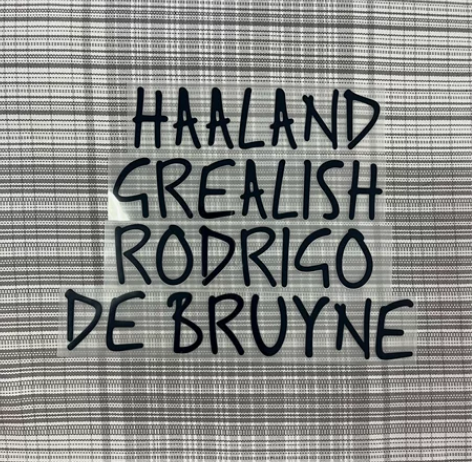 HAALAND
GREALISH
RODRIGO
DE BRUYNE